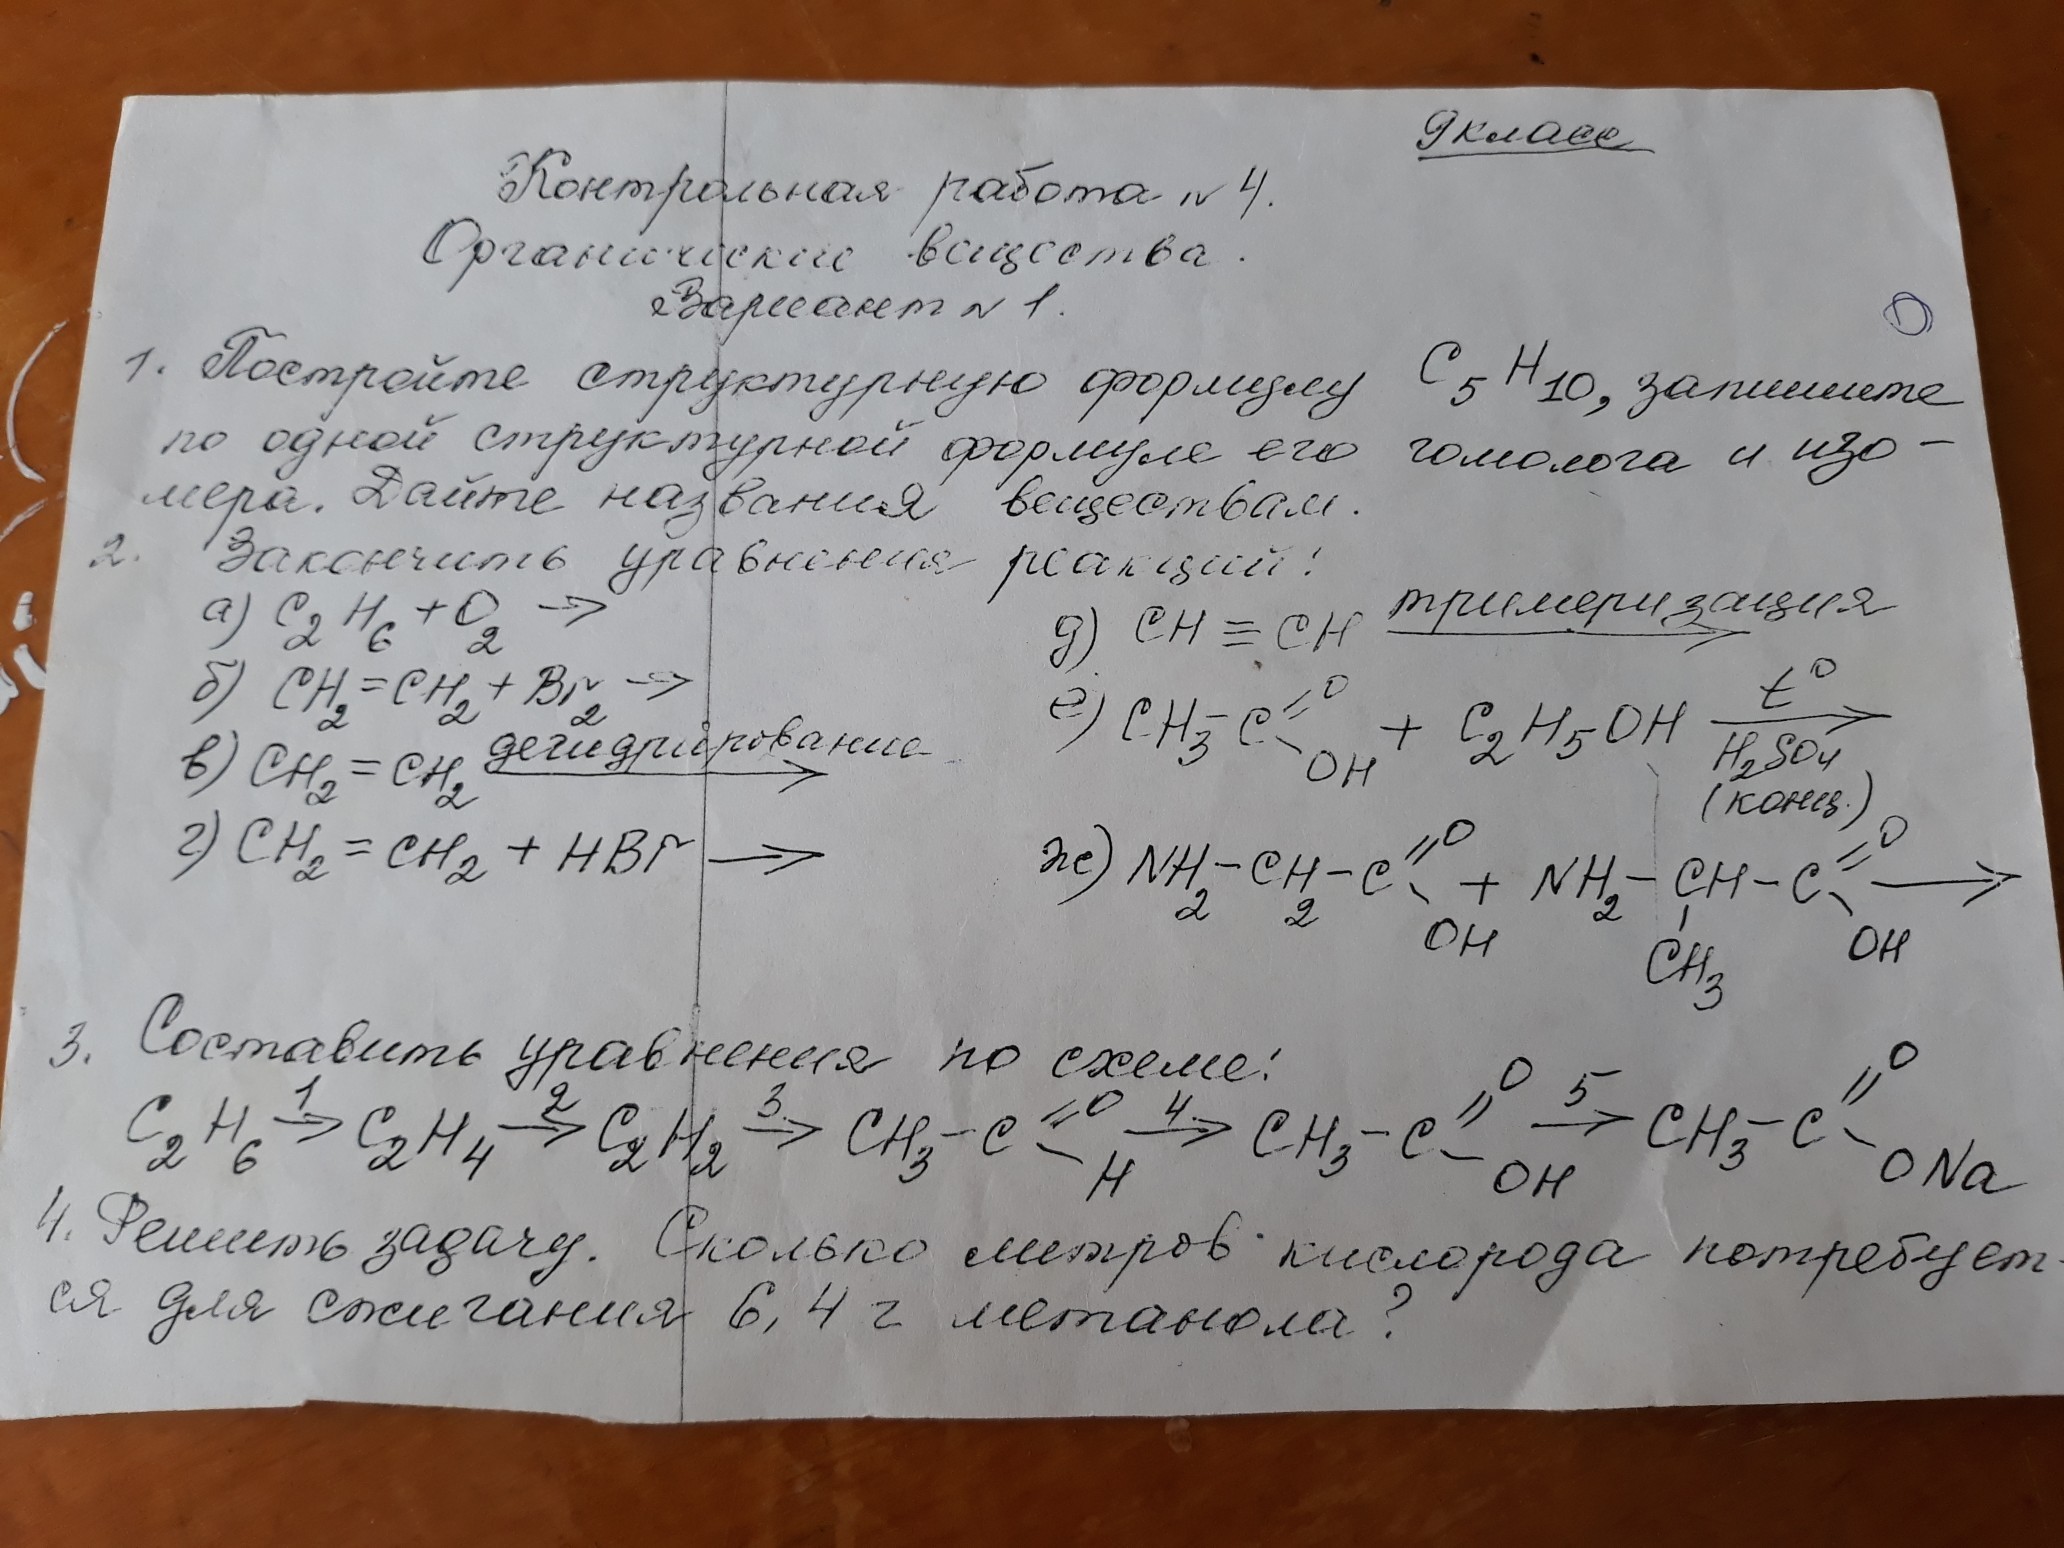 9 класс
Контрольная работа № 4.
Органические вещества.
Вариант № 1.
1. Постройте структурную формулу C₅H₁₀, запишите
по одной структурной формуле его гомолога и изо-
мера. Дайте названия веществам.
2. Закончить уравнения реакций:
а) C₂H₆ + O₂ →
б) CH₂=CH₂ + Br₂ →
в) CH₂=CH₂ дегидрирование →
г) CH₂=CH₂ + HBr →
д) CH≡CH тримеризация →
е) CH₃-C(=O)-OH + C₂H₅OH t° → H₂SO₄ (конц.)
ж) NH₂-CH₂-C(=O)-OH + NH₂-CH(CH₃)-C(=O)-OH →
3. Составить уравнения по схеме:
C₂H₆ 1→ C₂H₄ 2→ C₂H₂ 3→ CH₃-C(=O)-H 4→ CH₃-C(=O)-OH 5→ CH₃-C(=O)-ONa
4. Решить задачу. Сколько литров кислорода потребует-
ся для сжигания 6,4 г метанола?